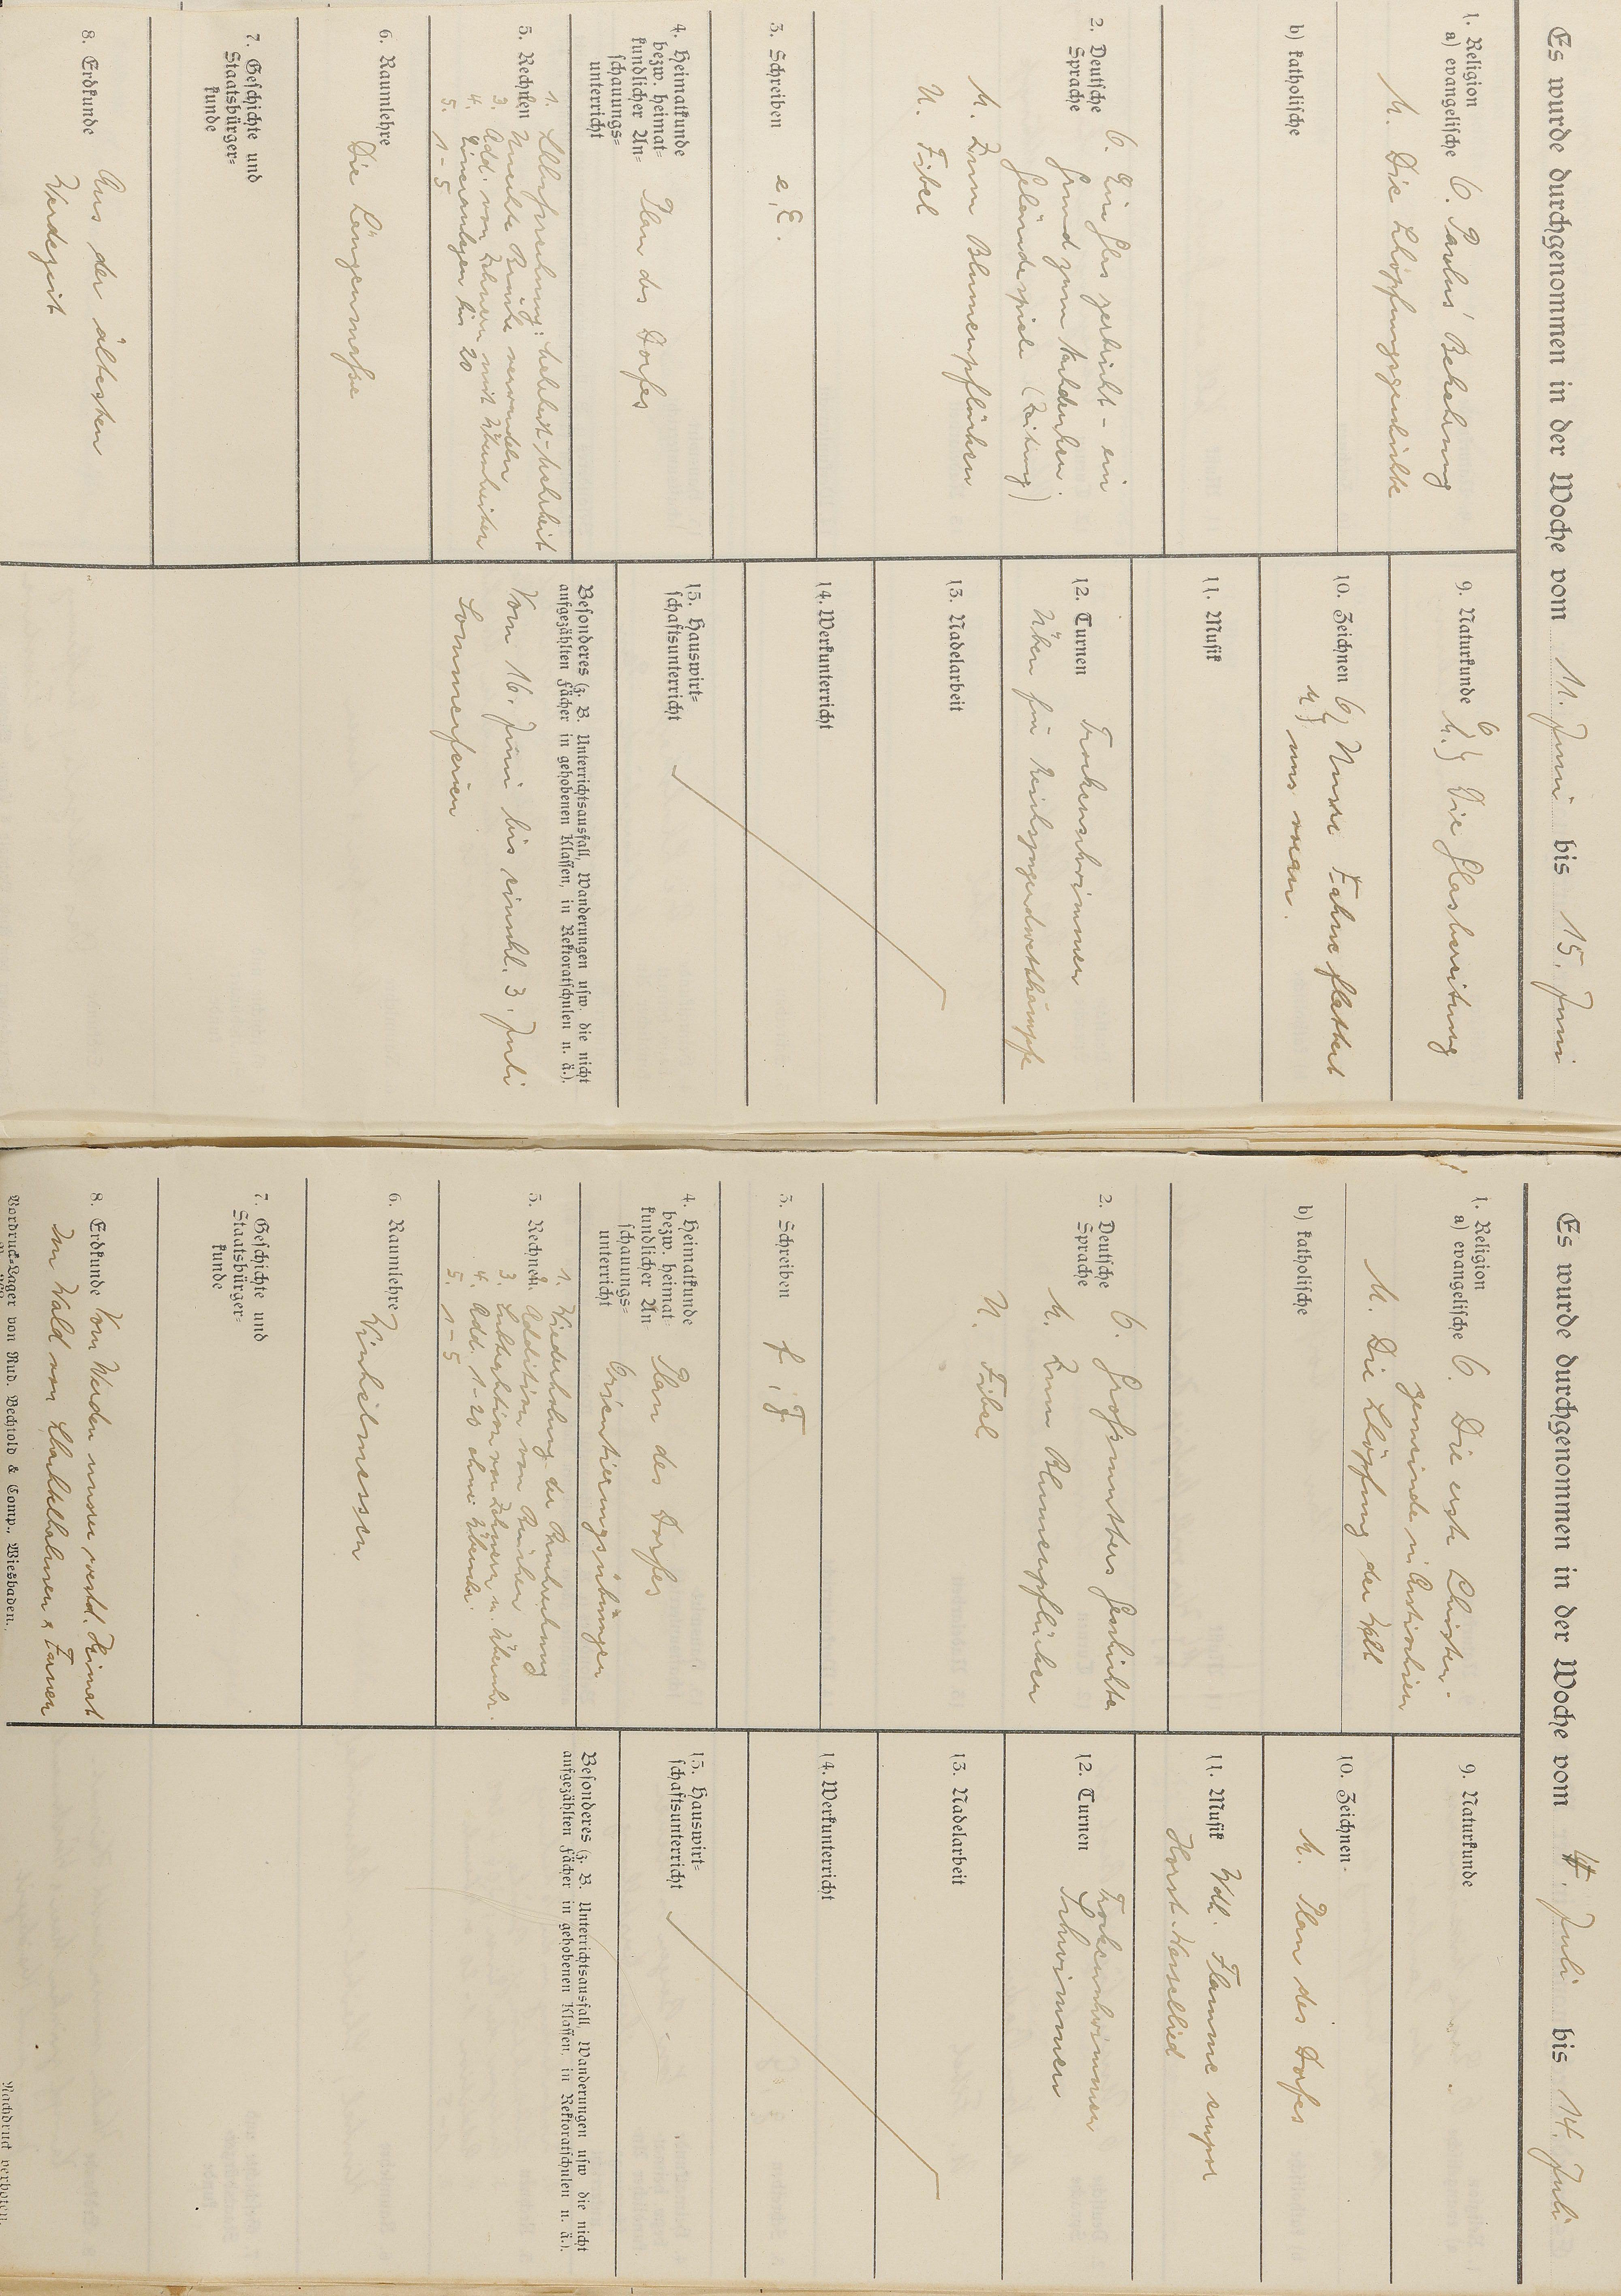 Es wurde durchgenommen in der Woche vom 11. Juni bis 15. Juni
1. Religion
a) evangelische O. Paulus' Bekehrung
M. Die Schöpfungsgeschichte
b) katholische
2. Deutsche
Sprache
O. Ein Glas zerbricht - ein
Grund zum Nachdenken.
Geländespiele (Zeitung)
M. Zum Blumenpflücken
U. Fibel
3. Schreiben e, E.
4. Heimatkunde
bezw. heimat-
kundlicher An-
schauungs-
unterricht
Plan des Dorfes
5. Rechnen
1. Schlußrechnung: Mehrheit
2. Unechte Brüche verwandeln
3. Add. von Zehnern mit Einheiten
4. bis 20
5. 1-5
6. Raumlehre
Die Längenmaße
7. Geschichte und
Staatsbürger-
kunde
8. Erdkunde Aus der ältesten
Werdezeit
9. Naturkunde O. M. } Die Glasbereitung
10. Zeichnen O. M. } Unsre Fahne flattert
uns voran.
11. Musik
12. Turnen Trockenschwimmen
Üben für Reichsjugendwettkämpfe
13. Nadelarbeit
14. Werkunterricht
15. Hauswirt-
schaftsunterricht
Besonderes (z. B. Unterrichtsausfall, Wanderungen usw. die nicht
aufgezählten Fächer in gehobenen Klassen, in Rektoratschulen u. ä.).
Vom 16. Juni bis einschl. 3. Juli
Sommerferien.
Es wurde durchgenommen in der Woche vom 4. Juli bis 14. Juli
1. Religion
a) evangelische O. Die erste Christen-
gemeinde in Antiochien
M. Die Schöpfung der Welt
b) katholische
2. Deutsche
Sprache
O. Großmutters Geschichte
M. Zum Blumenpflücken
U. Fibel
3. Schreiben f, F
4. Heimatkunde
bezw. heimat-
kundlicher An-
schauungs-
unterricht
Plan des Dorfes
Orientierungsübungen
5. Rechnen
1. Wiederholung der Bruchrechnung
2. Addition von Brüchen
3. Subtraktion von Zehnern m. Überschr.
4. Add. 1-20 ohne Überschr.
5. 1-5
6. Raumlehre
Winkelmessen
7. Geschichte und
Staatsbürger-
kunde
8. Erdkunde Vom Werden unsrer Heimat
Im Wald von Schachtelhalmen & Farnen
Vordruck-Lager von Rud. Bechtold & Comp., Wiesbaden.
9. Naturkunde
10. Zeichnen.
M. Plan des Dorfes
11. Musik Wdh. Flamme empor
Horst-Wessellied
12. Turnen Trockenschwimmen
Schwimmen
13. Nadelarbeit
14. Werkunterricht
15. Hauswirt-
schaftsunterricht
Besonderes (z. B. Unterrichtsausfall, Wanderungen usw die nicht
aufgezählten Fächer in gehobenen Klassen, in Rektoratschulen u. ä.).
Nachdruck verboten.